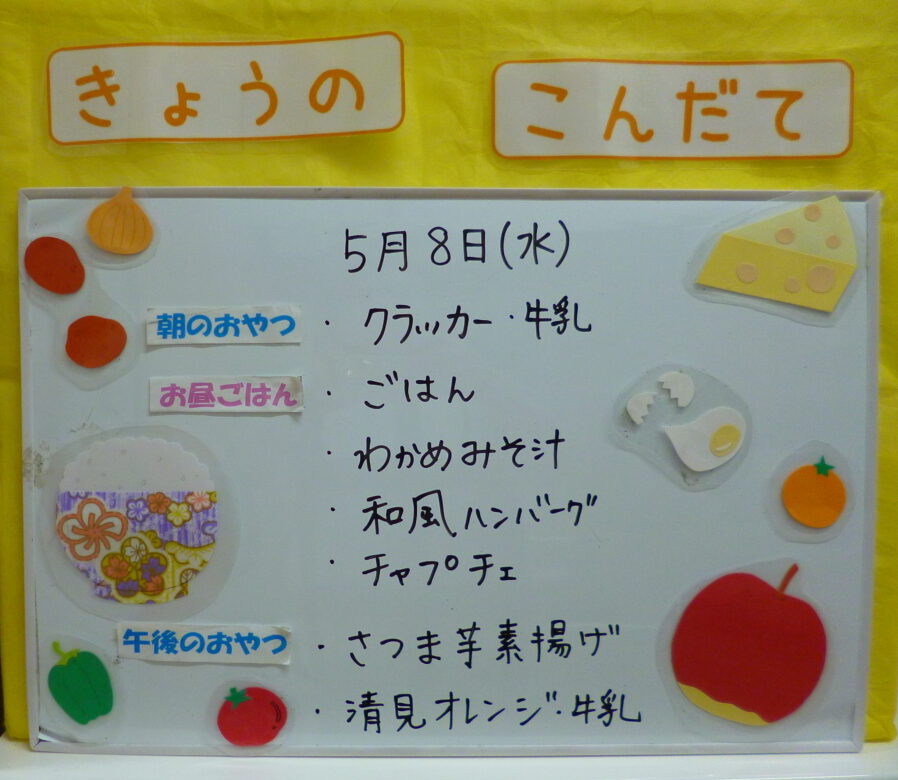 きょうの こんだて
5月8日(水)
朝のおやつ ・ クラッカー・牛乳
お昼ごはん ・ ごはん
・ わかめみそ汁
・ 和風ハンバーグ
・ チャプチェ
午後のおやつ ・ さつま芋素揚げ
・ 清見オレンジ・牛乳